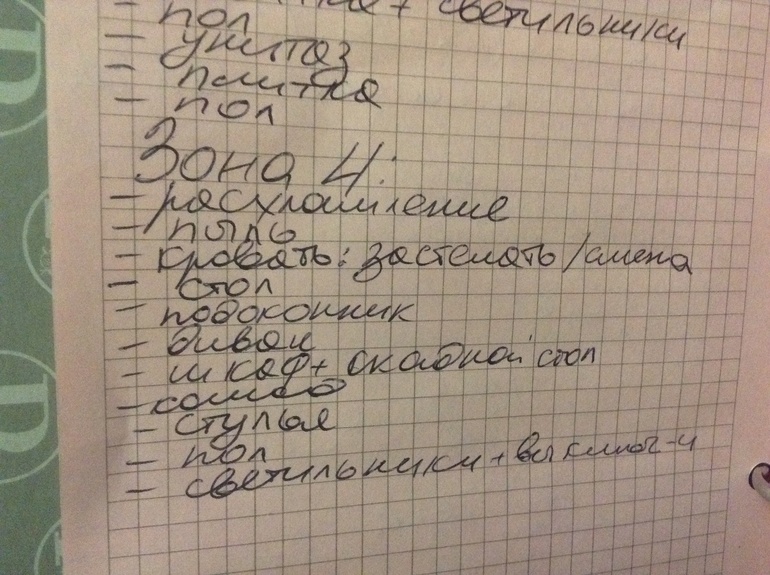 + светильники
- пол
- унитаз
- плитка
- пол
Зона 4:
- расхламление
- пыль
- кровать: застелать/смена
- стол
- подоконник
- диван
- шкаф + складной стол
- комод
- стулья
- пол
- светильники + выключ-и